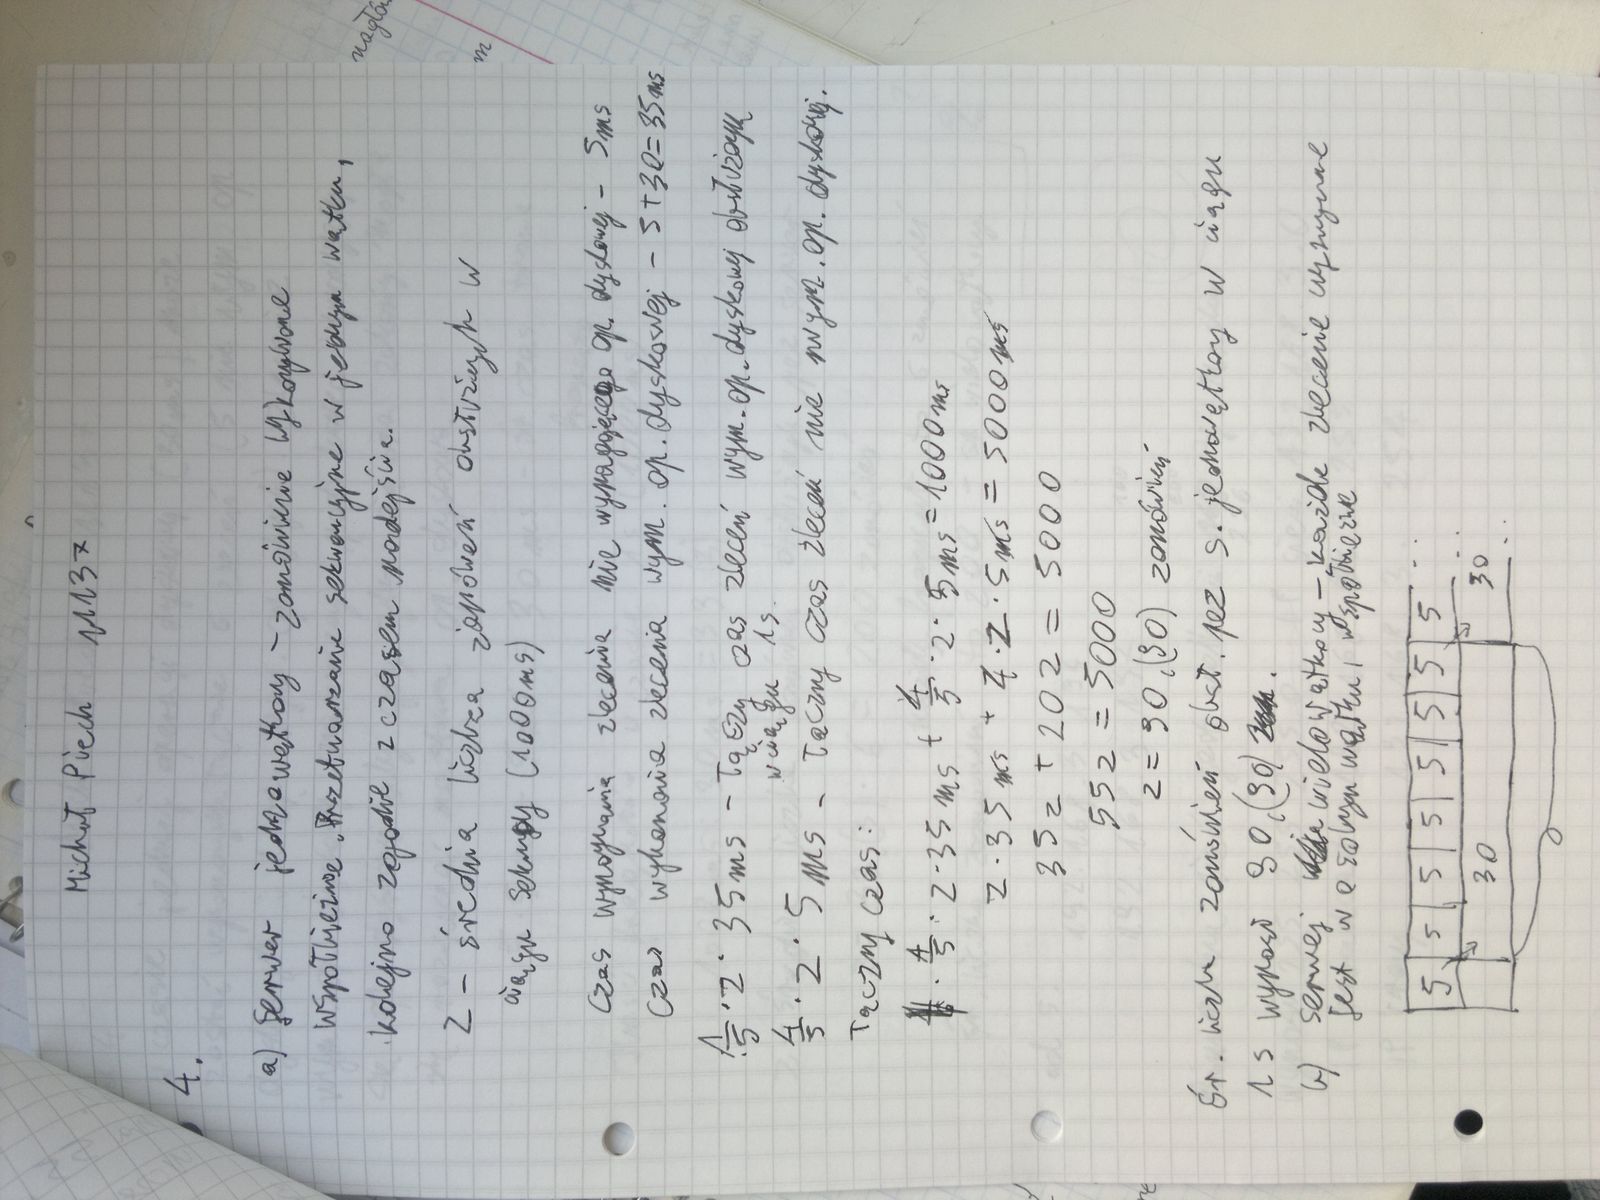 Michał Piech
4.
a) serwer jednowątkowy - zamówienie wykonywane
współbieżne. Przetwarzanie sekwencyjne w jednym wątku,
kolejno zgodnie z czasem nadejścia.
z - średnia liczba zamówień obsłużonych w
ciągu sekundy (1000ms)
Czas wykonania zlecenia nie wymagającego op. dyskowej - 5ms
Czas wykonania zlecenia wym. op. dyskowej - 5+30=35ms
1/5 · z · 35ms - Łączny czas zleceń wym. op. dyskowej obsłużonych
w ciągu 1s.
4/5 · z · 5 ms - Łączny czas zleceń nie wym. op. dyskowej.
Łączny czas:
1/5 · z · 35 ms + 4/5 · z · 5ms = 1000ms
z · 35ms + 4 · z · 5ms = 5000ms
35z + 20z = 5000
55z = 5000
z = 90,(90) zamówień
Śr. liczba zamówień obsł. przez s. jednowątkowy w ciągu
1s wynosi 90,(90).
b) serwer wielowątkowy - każde zlecenie wykonywane
jest w osobnym wątku, współbieżnie
5 5 5 5 5 5 5 ...
30 30 ...